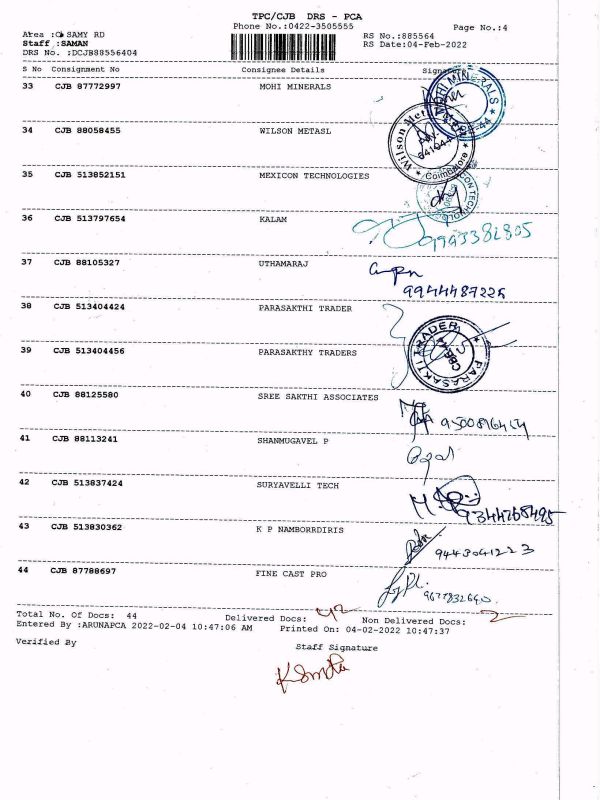 TPC/CJB DRS - PCA
Phone No.:0422-3505555
Page No.:4
SAMY RD
RS No.:885564
Staff :SAMAN
RS Date:04-Feb-2022
DRS No. :DCJB88556404
S No Consignment No Consignee Details Signature
33 CJB 87772997 MOHI MINERALS
MOHI MINERALS
34 CJB 88058455 WILSON METASL
Wilson Met
Coimbatore
35 CJB 513852151 MEXICON TECHNOLOGIES
36 CJB 513797654 KALAM
9993382805
37 CJB 88105327 UTHAMARAJ
9944487225
38 CJB 513404424 PARASAKTHI TRADER
PARASAKTI TRADER
CBE
39 CJB 513404456 PARASAKTHY TRADERS
40 CJB 88125580 SREE SAKTHI ASSOCIATES
41 CJB 88113241 SHANMUGAVEL P
42 CJB 513837424 SURYAVELLI TECH
9344768495
43 CJB 513830362 K P NAMBORRDIRIS
9443041223
44 CJB 87788697 FINE CAST PRO
Total No. Of Docs: 44 Delivered Docs: 42 Non Delivered Docs: 2
Entered By :ARUNAPCA 2022-02-04 10:47:06 AM Printed On: 04-02-2022 10:47:37
Verified By Staff Signature